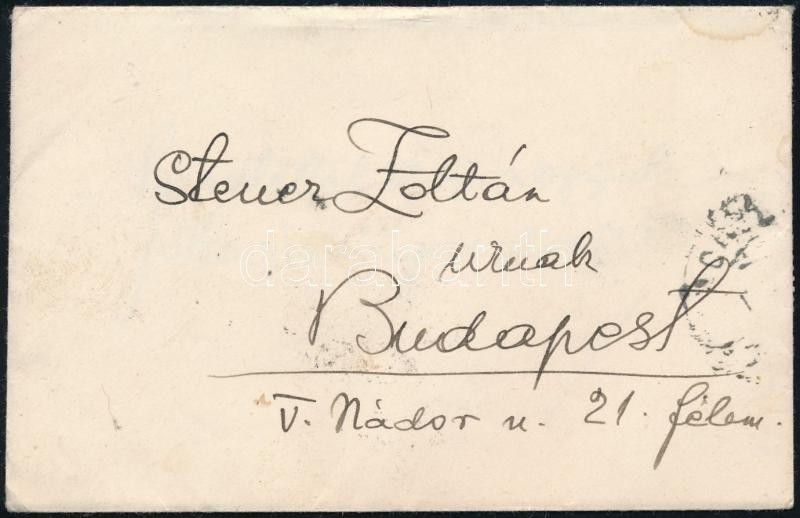 Steuer Zoltán
urnak
darabanth
Budapest
V. Nádor u. 21. félem.